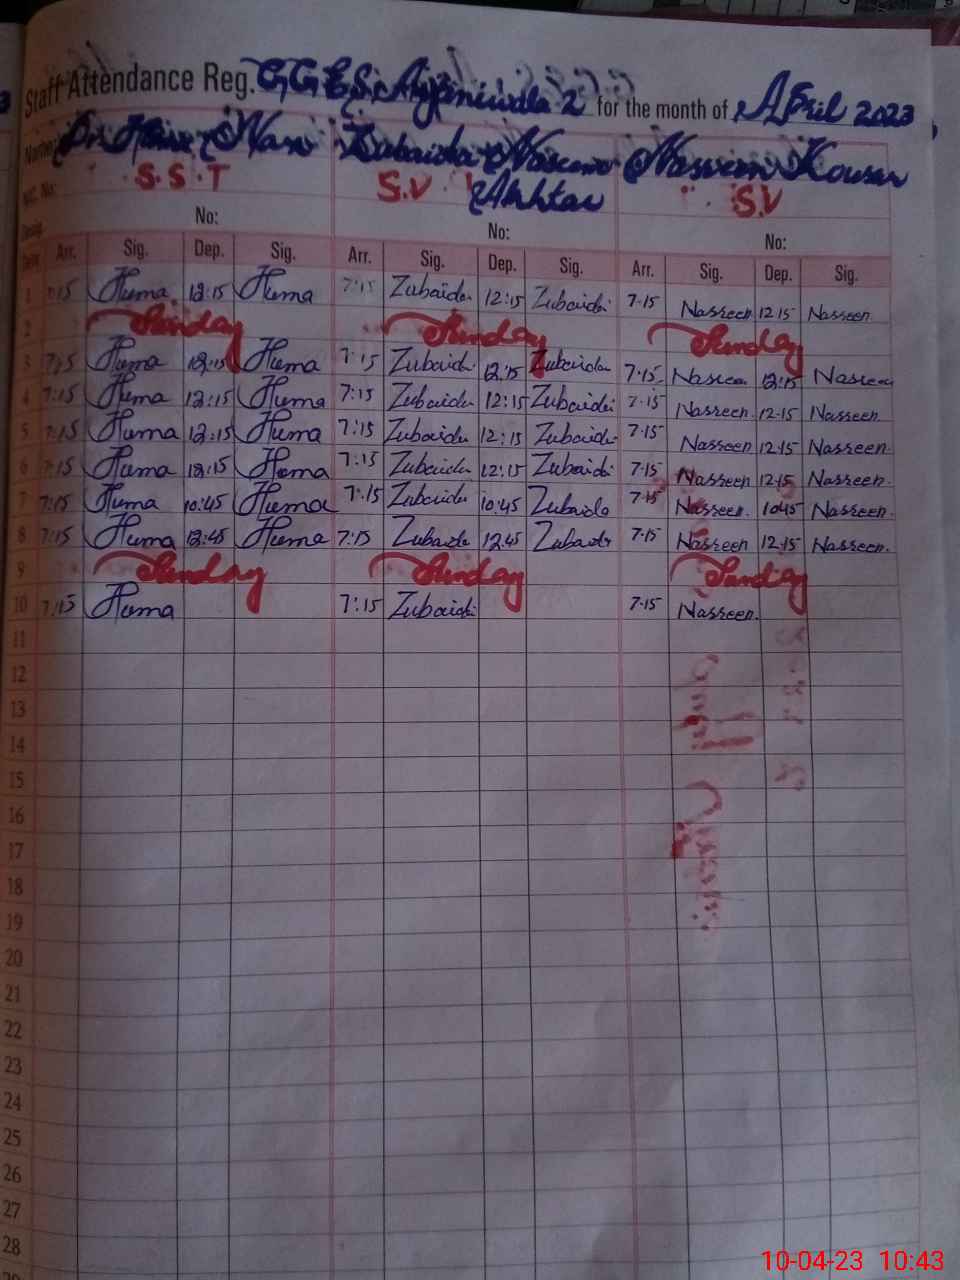 Staff Attendance Reg. G.G.E.S. 2 for the month of April 2023
Name: Zubaida Naseem Akhtar Nasreen Kousar
S.S.T S.V S.V
No: No: No:
Date Arr. Sig. Dep. Sig. Arr. Sig. Dep. Sig. Arr. Sig. Dep. Sig.
1 7:15 Huma 12:15 Huma 7:15 Zubaida 12:15 Zubaida 7-15 Nasreen 12-15 Nasreen
2 Sunday Sunday Sunday
3 7:15 Huma 12:15 Huma 7:15 Zubaida 12:15 Zubaida 7-15 Nasreen 12:15 Nasreen
4 7:15 Huma 12:15 Huma 7:15 Zubaida 12:15 Zubaida 7-15 Nasreen 12-15 Nasreen
5 7:15 Huma 12:15 Huma 7:15 Zubaida 12:15 Zubaida 7-15 Nasreen 12-15 Nasreen
6 7:15 Huma 12:15 Huma 7:15 Zubaida 12:15 Zubaida 7-15 Nasreen 12-15 Nasreen
7 7:15 Huma 10:45 Huma 7:15 Zubaida 10:45 Zubaida 7-15 Nasreen 10-45 Nasreen
8 7:15 Huma 12:45 Huma 7:15 Zubaida 12:45 Zubaida 7-15 Nasreen 12-15 Nasreen
9 Sunday Sunday Sunday
10 7:15 Huma 7:15 Zubaida 7-15 Nasreen
11
12
13
14
15
16
17
18
19
20
21
22
23
24
25
26
27
28
10-04-23 10:43